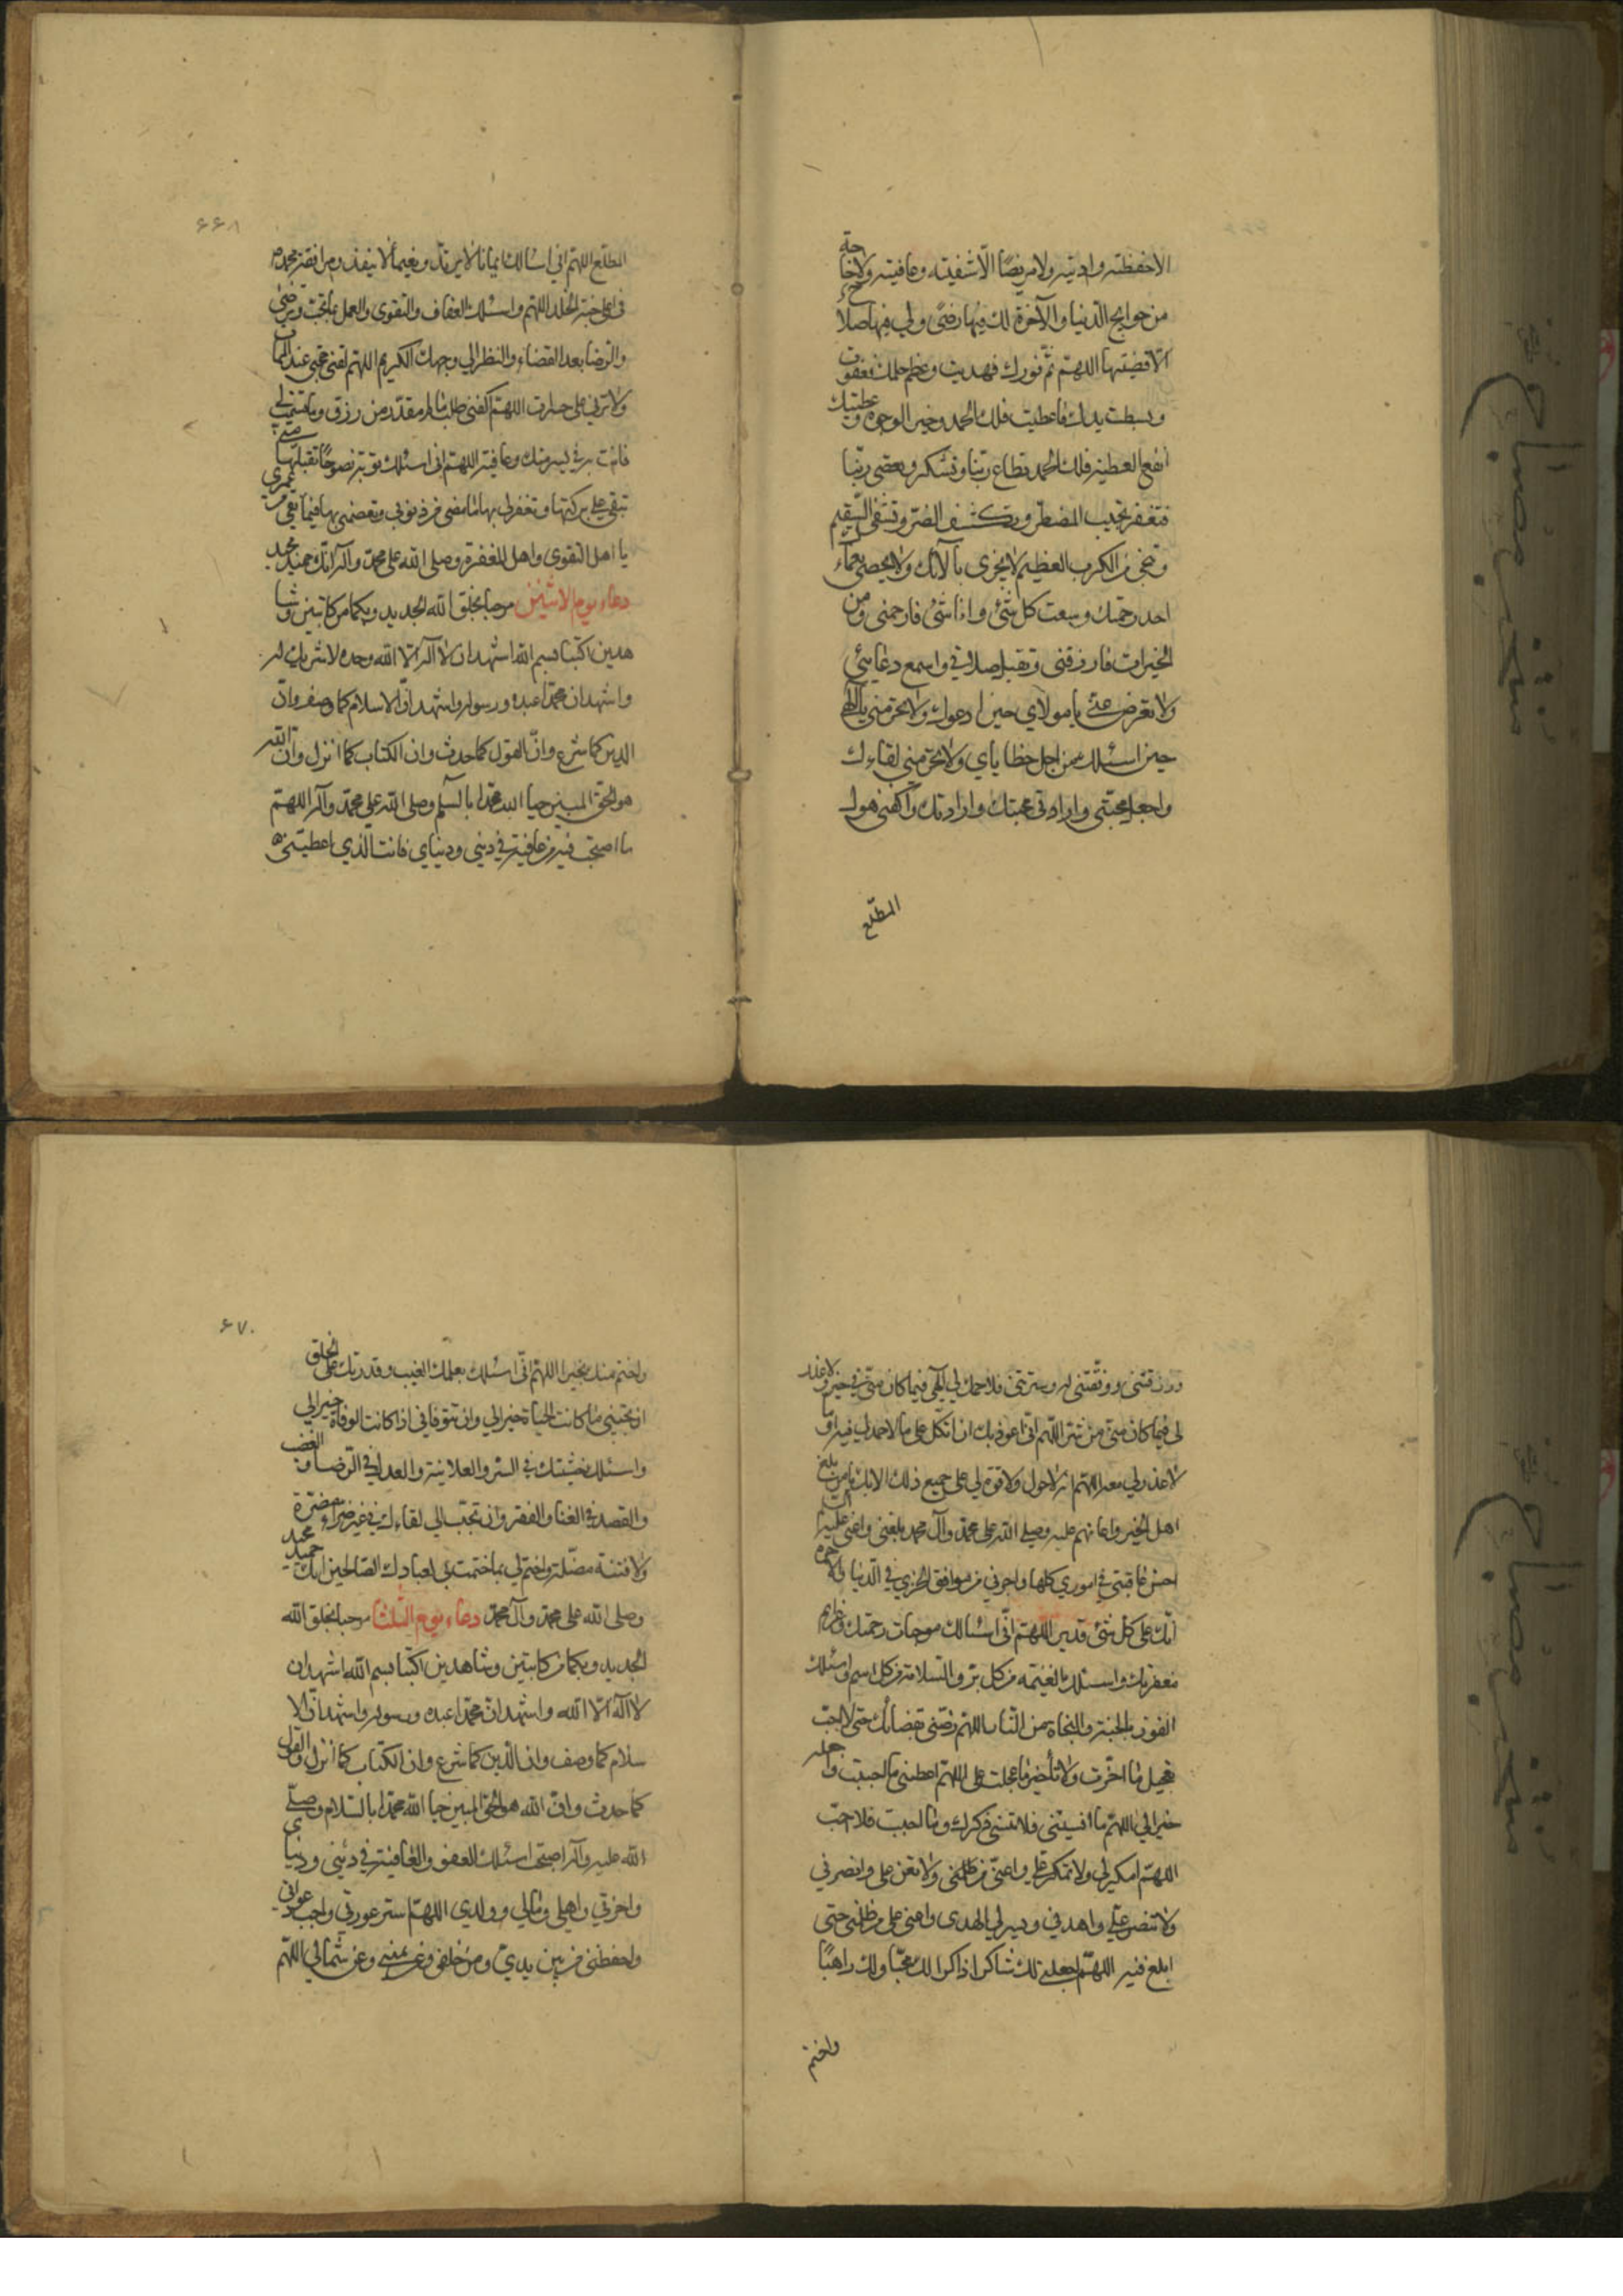 الاحفظته وادیته ولا مریضًا الّا شفیته وعافیته ولا حاجة
من حوایج الدّنیا والآخرة لك فیها رضًی ولي فیها صلاح
الّا قضیتها اللهمّ تمّ نورك فهدیت وعظم حلمك فعفوت
وبسطت یدك فاعطیت فلك الحمد وجهك خیر الوجوه وعطیتك
انفع العطیة فلك الحمد تطاع ربّنا وتشكر وتعصی ربّنا
فتغفر تجیب المضطر وتكشف الضّر وتشفی السّقیم
وتنجی من الكرب العظیم لا یجزی بآلائك ولا یحصی نعمائك
احد رحمتك وسعت كل شئ وانا شئ فارحمنی ومن
الخیرات فارزقنی وتقبل صلاتی واسمع دعائی
ولا تعرض عنّی یا مولاي حین ادعوك ولا تحرمنی یا الهی
حین اسئلك من اجل خطایاي ولا تحرمنی لقاءك
واجعل محبّتی وارادتی محبتك وارادتك واكفنی هول
المطّلع
۶۶۸
المطّلع اللهمّ انی اسالك ایمانا لا یرتدّ ونعیمًا لا ینفد ومرافقة محمد
فی اعلی جنة الخلد اللهمّ واسئلك العفاف والتقوی والعمل بما تحبّ وترضی
والرضا بعد القضاء والنظر الی وجهك الكریم اللهمّ لقنی حجتی عند الممات
ولا ترنی عملی حسرات اللهمّ اكفنی طلب ما لم تقدّر من رزق وما قسمت لی
فأت به فی یسر منك وعافیة اللهمّ انی اسئلك توبة نصوحًا تقبلها منی
تبقی علی بركتها وتغفر لی بها ما مضی من ذنوبی وتعصمنی بها فیما بقی من عمری
یا اهل التقوی واهل المغفرة وصلی الله علی محمّد وآله انّك حمید مجید
دعاء یوم الاثنین مرحبا بخلق الله الجدید وبكما من كاتبین وشا
هدین اكتبا بسم الله اشهد ان لا اله الّا الله وحده لا شریك له
واشهد ان محمّدا عبده ورسوله واشهد انّ الاسلام كما وصف وانّ
الدین كما شرع وانّ القول كما حدث وان الكتاب كما انزل وانّ الله
هو الحق المبین حیا الله محمّدا بالسلم وصلی الله علی محمّد وآله اللهمّ
ما اصبحت فیه من عافیة فی دینی ودنیاي فانت الّذي اعطیتنی
ورزقتنی ووفّقتنی له وسترتنی فلا حمد لي یا الهی فیما كان منّی من خیر ولا عذر
لی فیما كان منّی من شرّ اللّهم انّی اعوذ بك ان اتّكل علی ما لا حمد لی فیه او ما
لا عذر لي معه اللهمّ انه لا حول ولا قوة لي علی جمیع ذلك الا بك یا من بلغ
اهل الخیر واعانهم علیه وصلی الله علی محمّد وآل محمد بلغنی واعنی علیه
احسن عاقبتی فی اموري كلها واجرنی من مواقف الخزی فی الدّنیا والآخرة
انّك علی كلّ شئ قدیر اللهمّ انّی اسئالك موجبات رحمتك وعزائم
مغفرتك واسئلك الغنیمه من كل برّ والسّلامة من كل اثم واسئلك
الفوز بالجنة والنجاة من النّار اللهمّ رضّنی بقضائك حتی لا احبّ
تعجیل ما اخّرت ولا تأخیر ما عجلت علی اللهمّ اعطنی ما احببت واجعله
خیرا لی اللهمّ ما انسیتنی فلا تنسنی ذكرك وما احببت فلا احبّ
اللهمّ امكر لی ولا تمكر علیّ واعنّی من ظلمنی ولا تعن علی وانصرنی
ولا تنصر علیّ واهدنی ویسر لی الهدی واعنی علی من ظلمنی حتی
ابلغ فیه اللهمّ اجعلنی لك شاكرا ذاكرا لك محبّا ولك راهبًا
واختم
۶۷۰
واختم منك بخیر اللهمّ انّی اسئلك بعلمك الغیب وقدرتك علی الخلق
ان تحیینی ما كانت الحیاة خیرا لی وان تتوفانی اذا كانت الوفاة خیرا لی
واسئلك خشیتك فی السّر والعلانیة والعدل فی الرّضا والغضب
والقصد فی الغنا والفقر وان تحبّب الی لقاءك فی غیر ضراء مضرّة
ولا فتنة مضّلة واختم لي بما ختمت به لعبادك الصّالحین انك حمید مجید
وصلی الله علی محمّد وآل محمّد دعاء یوم الثلثا مرحبا بخلق الله
الجدید وبكما من كاتبین وشاهدین اكتبا بسم الله اشهد ان
لا اله الّا الله واشهد انّ محمّدا عبده ورسوله واشهد انّ الا
سلام كما وصف وان الدّین كما شرع وان الكتاب كما انزل والقول
كما حدث وانّ الله هو الحق المبین حیا الله محمّدا بالسّلام وصلّی
الله علیه وآله اصبحت اسئلك العفو والعافیة فی دینی ودنیای
وآخرتي واهلي ومالي وولدي اللهمّ استر عورتی واجب دعواتی
واحفظنی من بین یديّ ومن خلفی وعن یمینی وعن شمالي اللّهمّ